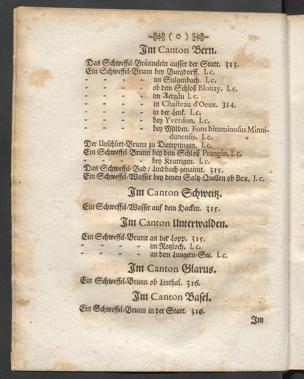 ( o )
Im Canton Bern.
Das Schweffel-Brünnelein ausser der Statt. 313.
Ein Schweffel-Brunn bey Burgdorff. l. c.
- - - im Sulgenbach. l. c.
- - - ob dem Schloß Blonay. l. c.
- - - im Aergäu l. c.
- - - in Chasteau d'Oeux. 314.
- - - in der Lenk. l. c.
- - - bey Yverdon. l. c.
- - - bey Milden. Fons bituminosus Minni-
dunensis. l. c.
Der Unschlitt-Brunn zu l. c.
Ein Schweffel-Brunn bey dem Schloß Prangin. l. c.
- - - bey Krattigen. l. c.
Das Schweffel-Bad / Lindbach genannt. 315.
Ein Schweffel-Wasser bey denen Saltz-Quellen ob Bex. l. c.
Im Canton Schweitz.
Ein Schweffel-Wasser auf dem Hacken. 315.
Im Canton Unterwalden.
Ein Schweffel-Brunn an der Lopp. 315.
- - - im Rotzloch. l. c.
- - - an dem Lungern-See. l. c.
Im Canton Glarus.
Ein Schweffel-Brunn ob Linthal. 316.
Im Canton Basel.
Ein Schweffel-Brunn in der Statt. 316.
Im